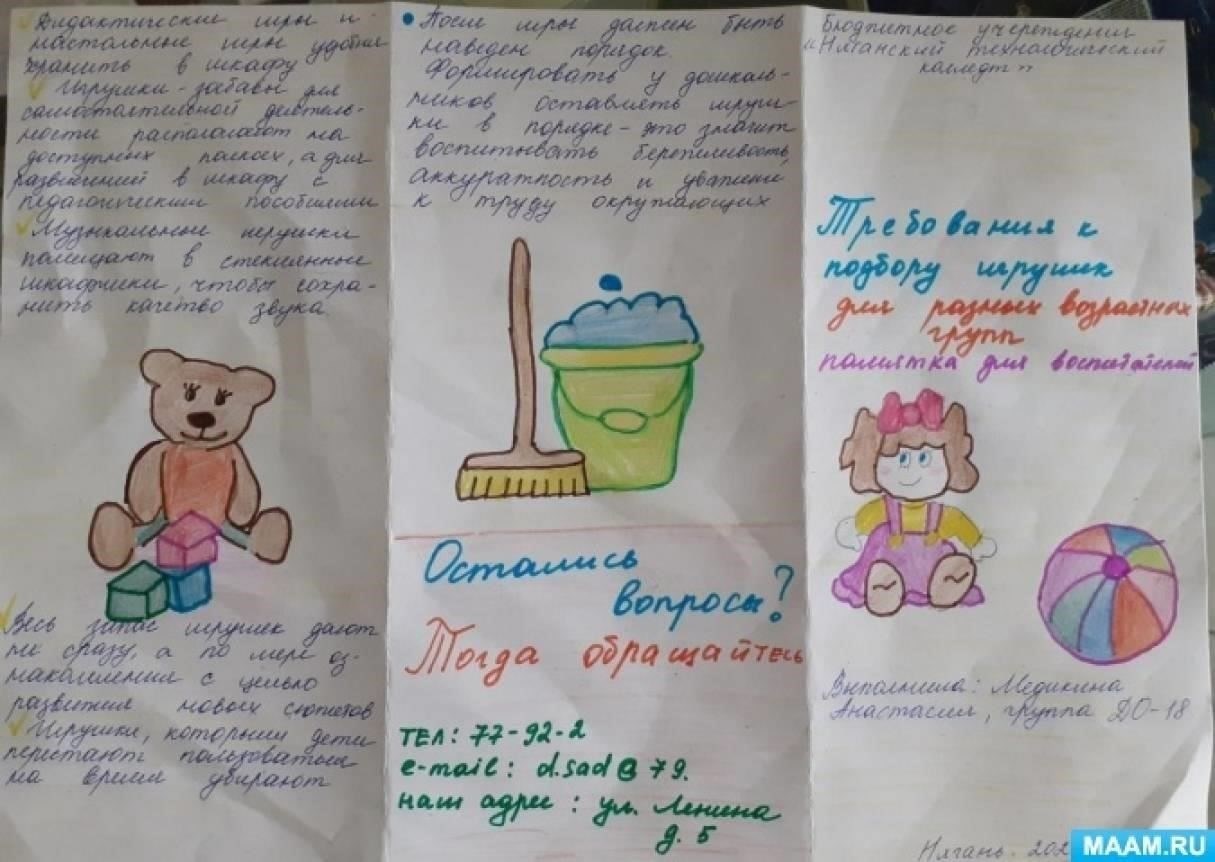 Дидактические игры и
настольные игры удобнее
хранить в шкафу
Игрушки-забавы для
самостоятельной деятель-
ности располагают на
доступных полках, а для
развлечений в шкафу с
педагогическими пособиями
Музыкальные игрушки
помещают в стеклянные
шкафчики, чтобы сохра-
нить качество звука.
Весь запас игрушек дают
не сразу, а по мере оз-
накомления с целью
развития новых сюжетов
Игрушки, которыми дети
перестают пользоваться
на время убирают
После игры должен быть
наведен порядок.
Формировать у дошколь-
ников оставлять игруш-
ки в порядке - это значит
воспитывать бережливость,
аккуратность и уважение
к труду окружающих
Остались
вопросы?
Тогда обращайтесь
тел: 77-92-2
e-mail: d.sad@79.
наш адрес: ул. Ленина
д. 5
Бюджетное учереждения
"Няганский технологический
колледж"
Требования к
подбору игрушек
для разных возрастных
групп
памятка для воспитателей
Выполнила: Медикина
Анастасия, группа ДО-18
Нягань.
MAAM.RU